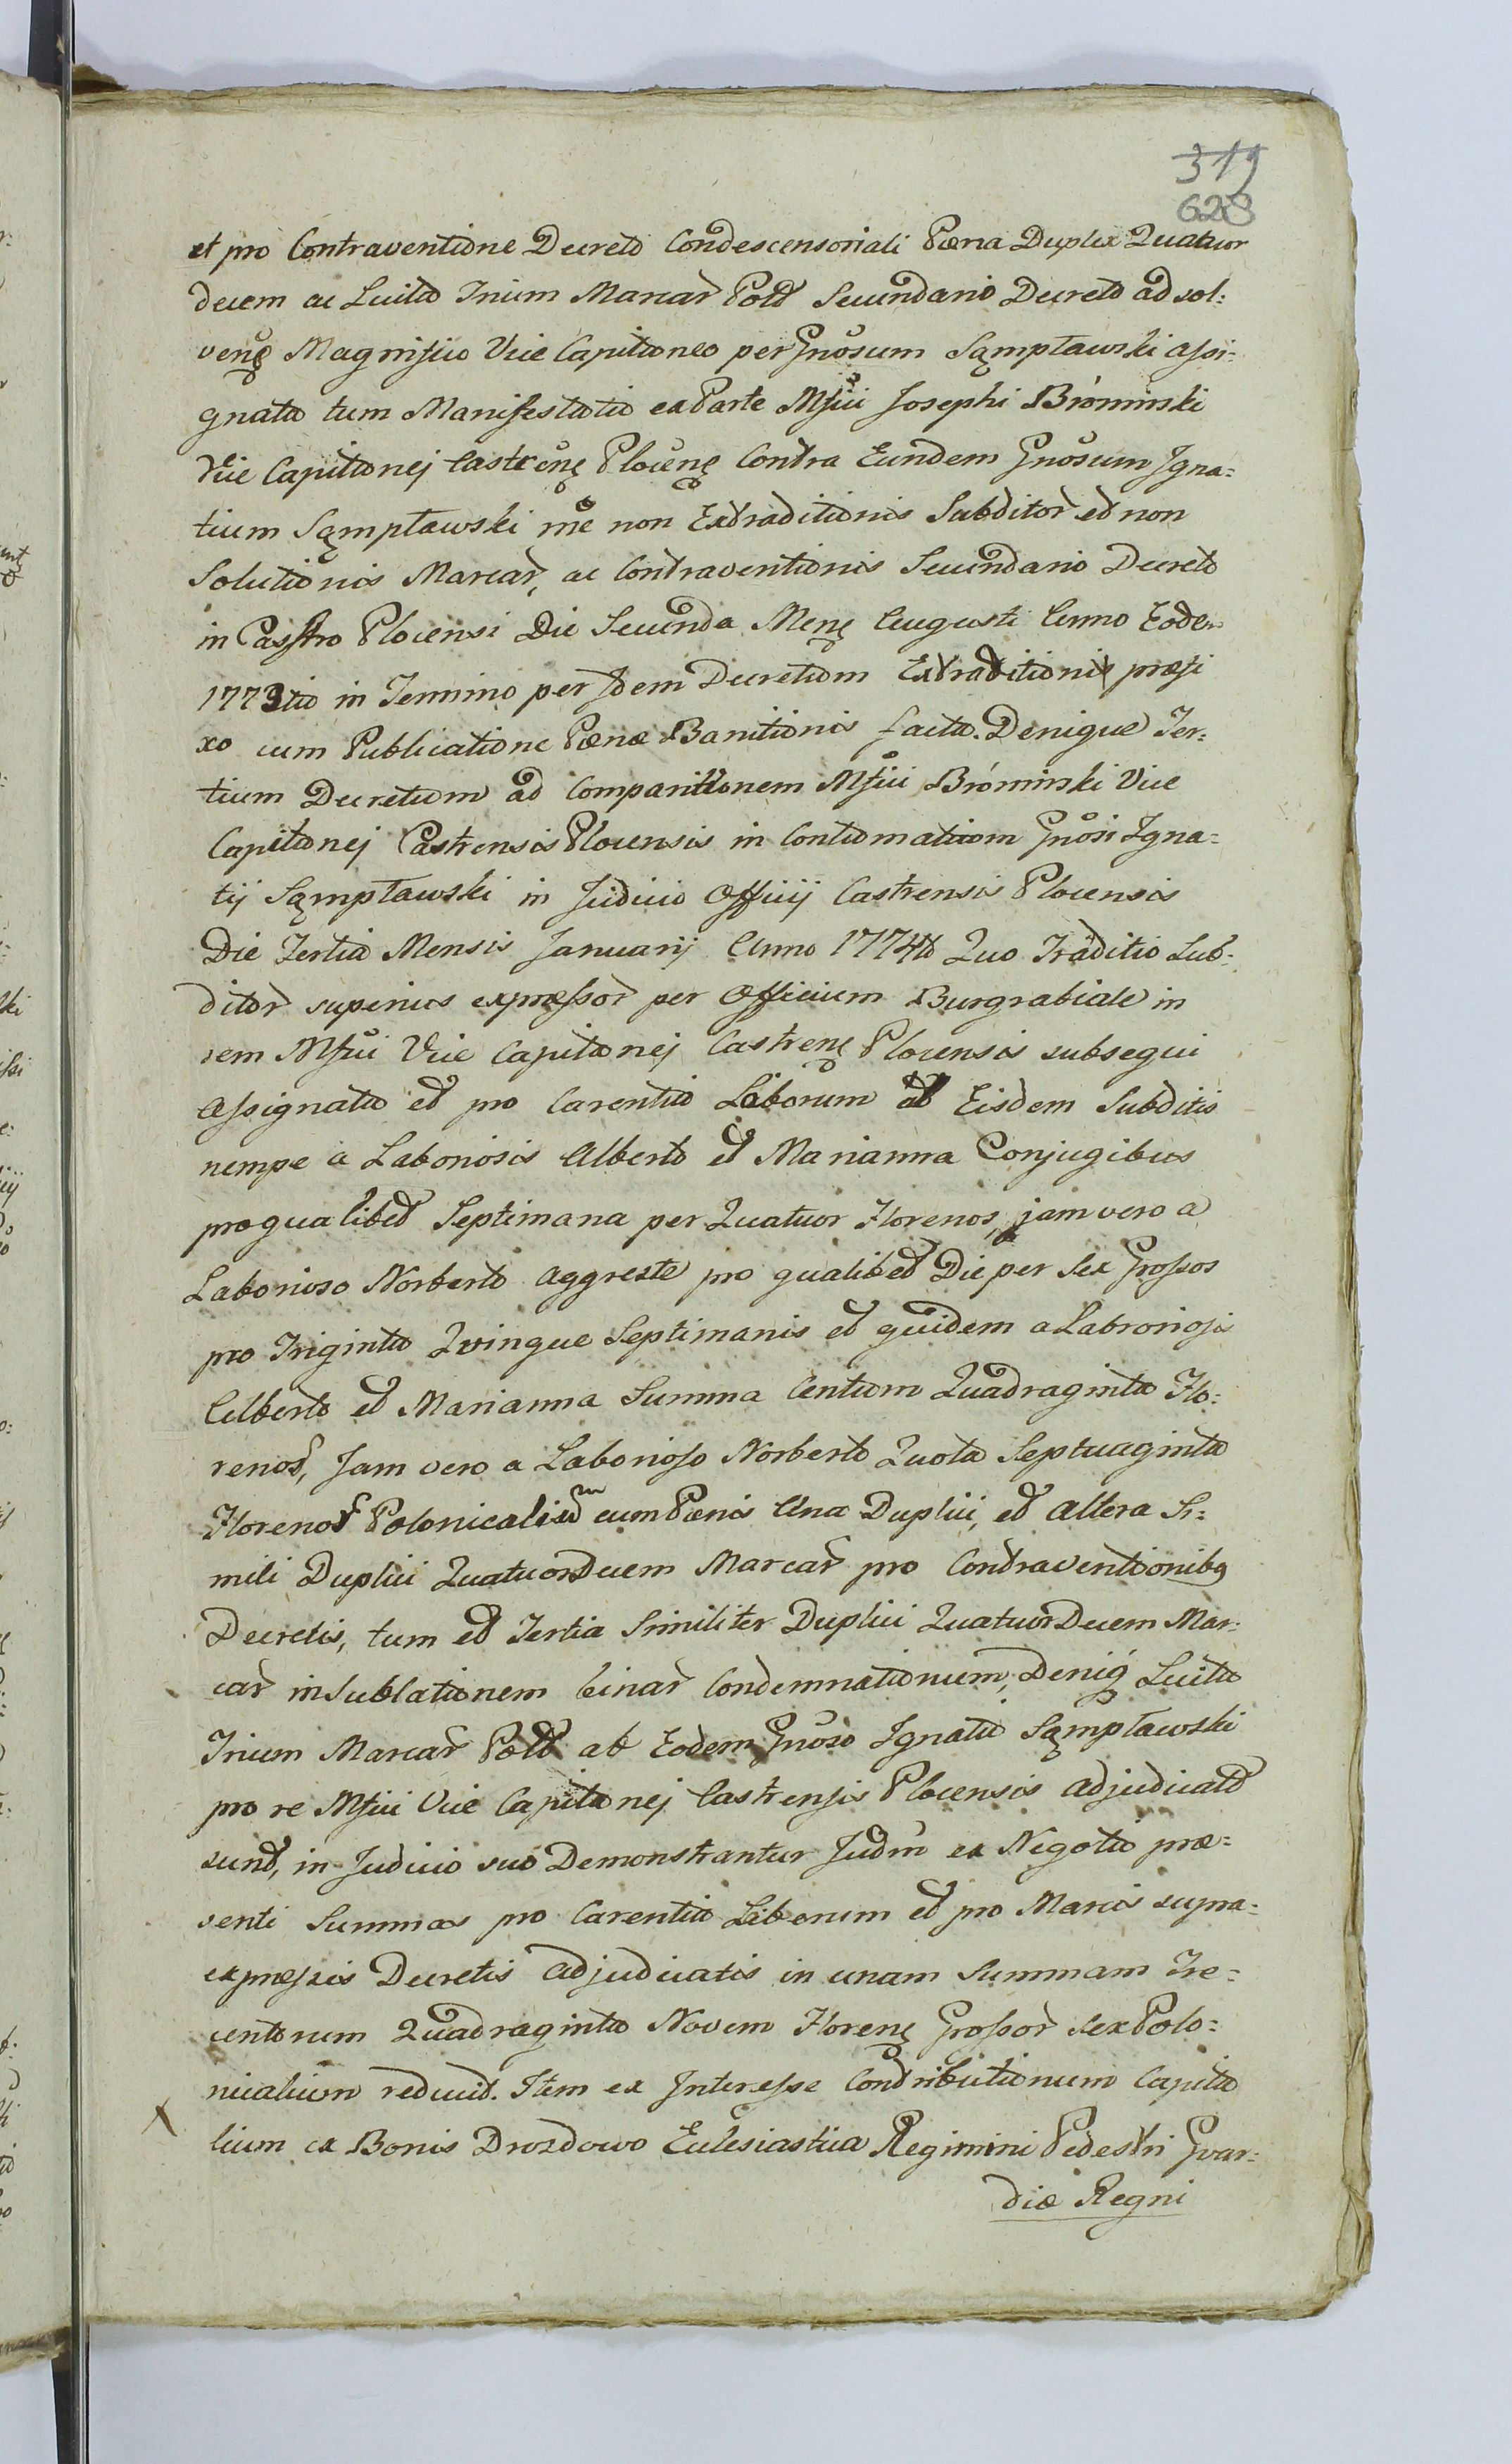 319
628
et pro Contraventione Decreto Condescensoriali Pæna Duplex Quatuor
decem ac Luita Trium Marcar Pold Secundario Decreto ad sol:
venę Magnifico Vice Capitaneo per Gnosum Sąmpławski assi:
gnata tum Manifestatio ex Parte Mfici Josephi Brominski
Vice Capitanej Castrenę Plocenę Contra Eundem Gnosum Igna:
tium Sąmpławski me non Extraditionis Subditor et non
Solutionis Marcar, ac Contraventionis Secundario Decreto
in Casstro Plocensi Die Secunda Menę Augusti Anno Eodem
1773tio in Termino per Idem Decretum Extraditionis præfi
xo cum Publicatione Pænæ Banitionis facta. Denique Ter:
tium Decretum ad Comparitionem Mfici Brominski Vice
Capitanej Castrensis Plocensis in Contumatiam Gnosi Igna:
tij Sąmpławski in Judicio Officij Castrensis Plocensis
Die Tertia Mensis Januarij Anno 1774to Quo Traditio Sub:
ditor superius expressor per Officium Burgrabiale in
rem Mfici Vice Capitanej Castrenę Plocensis subsequi
assignata et pro Carentia Laborum ab Eisdem Subditis
nempe a Laboriosis Alberto et Marianna Conjugibus
pro qualibet Septimana per Quatuor Florenos, jam vero a
Laborioso Norberto aggreste pro qualibet Die per Sex Grossos
pro Triginta Quinque Septimanis et quidem a Labroriosis
Alberto et Marianna Summa Centum Quadraginta Flo:
renor, Jam vero a Laborioso Norberto Quota Septuaginta
Florenor Polonicalium cum Pænis Una Duplici, et altera Si:
mili Duplici Quatuordecem Marcar pro Contraventionibq
Decretis, tum et Tertia Similiter Duplici Quatuor Decem Mar:
car in Sublationem binar Condemnationum, Deniq Luita
Trium Marcar Pold ab Eodem Gnoso Ignatio Sąmpławski
pro re Mfici Vice Capitanej Castrensis Plocensis adjudicata
sunt, in Judicio suo Demonstrantur Judm ex Negotio præ:
senti Summas pro Carentia Laborum et pro Marcis supra:
expressis Decretis adjudicatis in unam Summam Tre:
centorum Quadraginta Novem Florenę Grossor sex Polo:
nicalium reducit. Item ex Interesse Contributionum Capita
lium ex Bonis Drozdowo Eclesiastica Regimini Pedestri Gvar:
diæ Regni